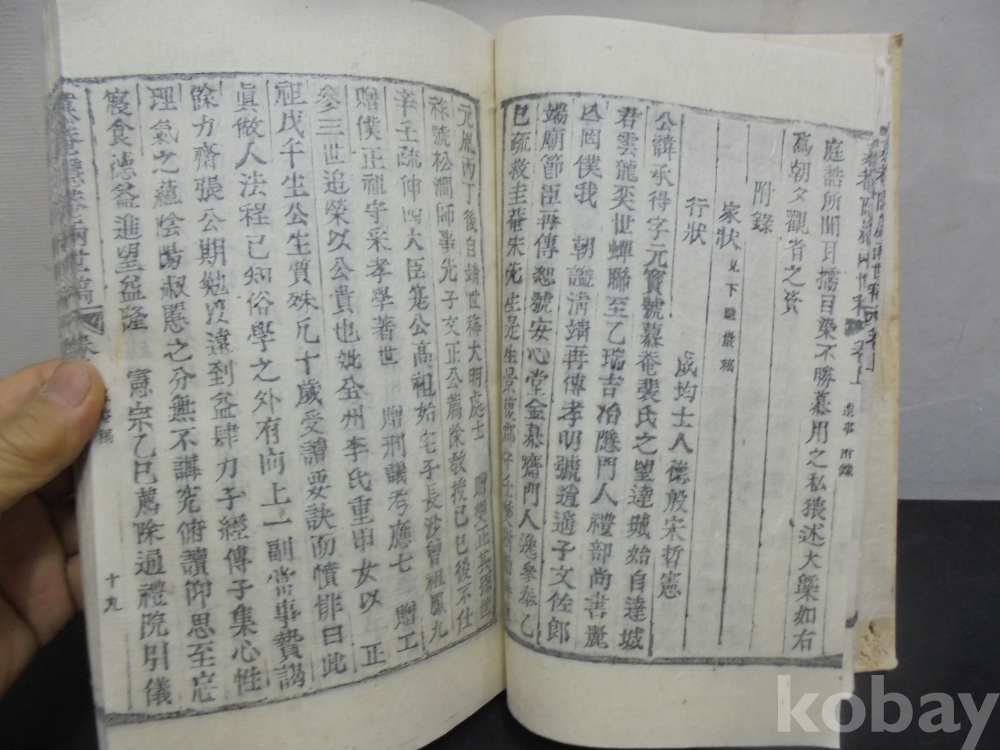 庭誥所聞耳擩目染不勝慕用之私猥述大槩如右
爲朝夕觀省之資
附錄
家狀 見下 巖稿
行狀
成均士人德殷宋哲憲
公諱承得字元寶號慕菴裴氏之望達城始自達城
君雲龍奕世蟬聯至乙瑞吉冶隱門人禮部尚書麗
凶罔僕我 朝謚淸靖再傳孝明號道遁子文佐郎
端廟節臣再傳恕號安心堂金慕齋門人逸參奉乙
巳疏救圭菴宋先生是生景
元胤丙丁後自靖世稱大明處士
祩號松澗師事先子文正公薦除敎授己巳後不仕
辛壬疏伸四大臣寃公高祖始宅子長波曾祖鳳九
贈僕正祖守采孝學著世 贈刑議考應七 贈工
參三世追榮以公貴也妣全州李氏重申女以 正
祖戊午生公生質殊凡十歲受讀要訣面憤悱曰此
眞做人法程已知俗學之外有向上一副當事贄謁
餘力齋張公期勉 遠到益肆力子經傳子集心性
理氣之蘊陰陽淑慝之分無不講究俯讀仰思至忘
寢食德益進望益隆 憲宗乙巳薦除通禮院引儀
十九
遺事 附錄
kobay